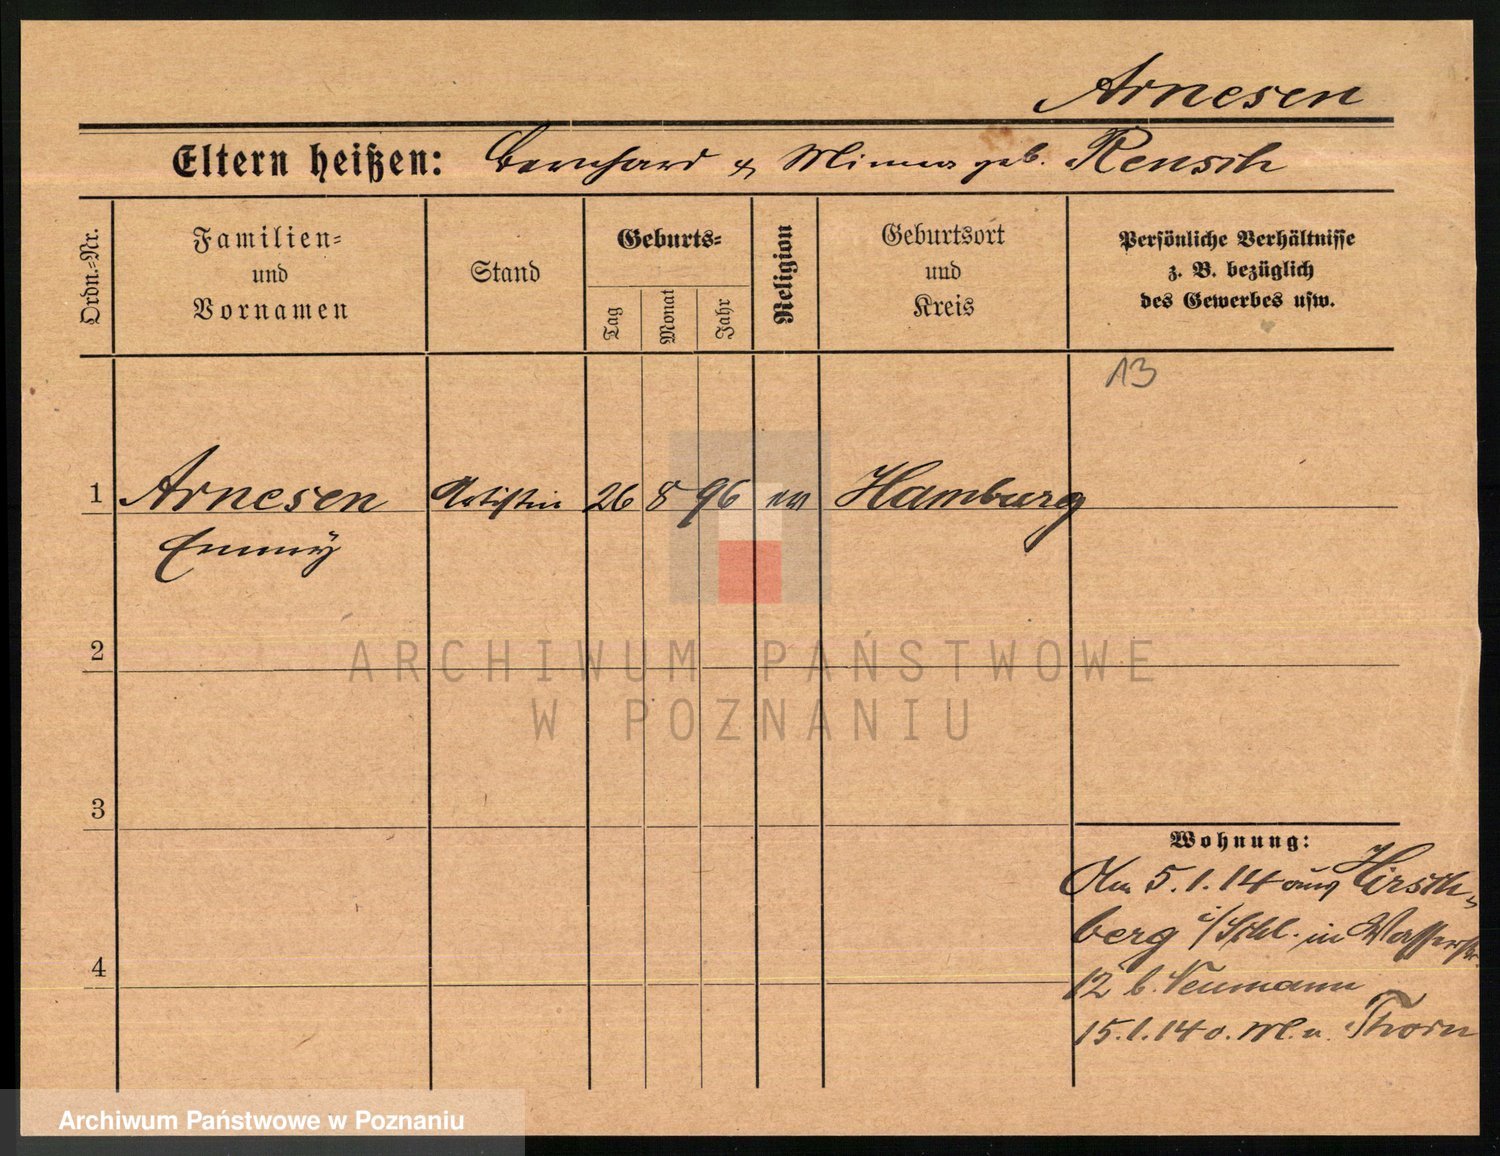 Arnesen
Eltern heißen: Bernhard & Minna geb. Rensch
Ordn.-Nr.
Familien-
und
Vornamen
Stand
Geburts-
Tag
Monat
Jahr
Religion
Geburtsort
und
Kreis
Persönliche Verhältnisse
z. B. bezüglich
des Gewerbes usw.
13
1 Arnesen Artistin 26 8 96 ev Hamburg
Emmy
2
ARCHIWUM PAŃSTWOWE
W POZNANIU
3
Wohnung:
Am 5.1.14 aus Hirsch-
berg i/Schl. in Wasserstr.
4
12 b. Neumann
15.1.14 o. M. n. Thorn
Archiwum Państwowe w Poznaniu